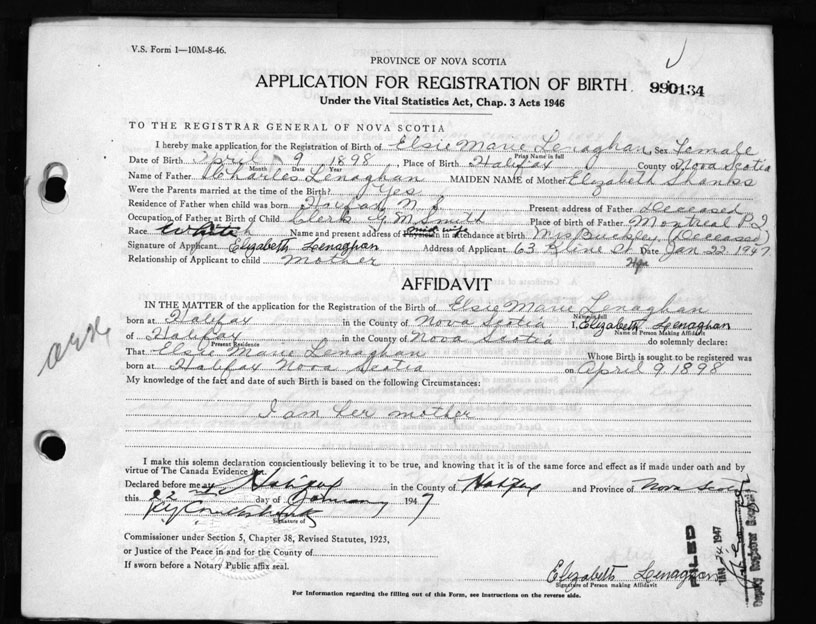 V.S. Form 1—10M-8-46.
PROVINCE OF NOVA SCOTIA
APPLICATION FOR REGISTRATION OF BIRTH 990134
Under the Vital Statistics Act, Chap. 3 Acts 1946
TO THE REGISTRAR GENERAL OF NOVA SCOTIA
I hereby make application for the Registration of Birth of Elsie Marie Lenaghan Sex Female
Print Name in full
Date of Birth April 9 1898, Place of Birth Halifax County of Nova Scotia
Month Date Year
Name of Father Charles Lenaghan MAIDEN NAME of Mother Elizabeth Shanks
Were the Parents married at the time of the Birth? Yes
Residence of Father when child was born Halifax N.S. Present address of Father deceased
Occupation of Father at Birth of Child Clerk G M Smith Place of birth of Father Montreal P Q
Race White Name and present address of Physician mid wife in attendance at birth Mrs Buckley (Deceased)
Signature of Applicant Elizabeth Lenaghan Address of Applicant 63 Kline St Date Jan 22 1947
Relationship of Applicant to child mother Hfx
AFFIDAVIT
IN THE MATTER of the application for the Registration of the Birth of Elsie Marie Lenaghan
Name in full
born at Halifax in the County of Nova Scotia I, Elizabeth Lenaghan
Name of Person Making Affidavit
of Halifax in the County of Nova Scotia do solemnly declare:
Present Residence
That Elsie Marie Lenaghan Whose Birth is sought to be registered was
born at Halifax Nova Scotia on April 9 1898
My knowledge of the fact and date of such Birth is based on the following Circumstances:
I am her mother
I make this solemn declaration conscientiously believing it to be true, and knowing that it is of the same force and effect as if made under oath and by
virtue of The Canada Evidence Act.
Declared before me at Halifax in the County of Halifax and Province of Nova Scotia
this 22nd day of January 1947
Signature of
Commissioner under Section 5, Chapter 38, Revised Statutes, 1923,
or Justice of the Peace in and for the County of
If sworn before a Notary Public affix seal.
Elizabeth Lenaghan
Signature of Person making Affidavit
For Information regarding the filling out of this Form, see instructions on the reverse side.
FILED
JAN 24 1947
Deputy Registrar General